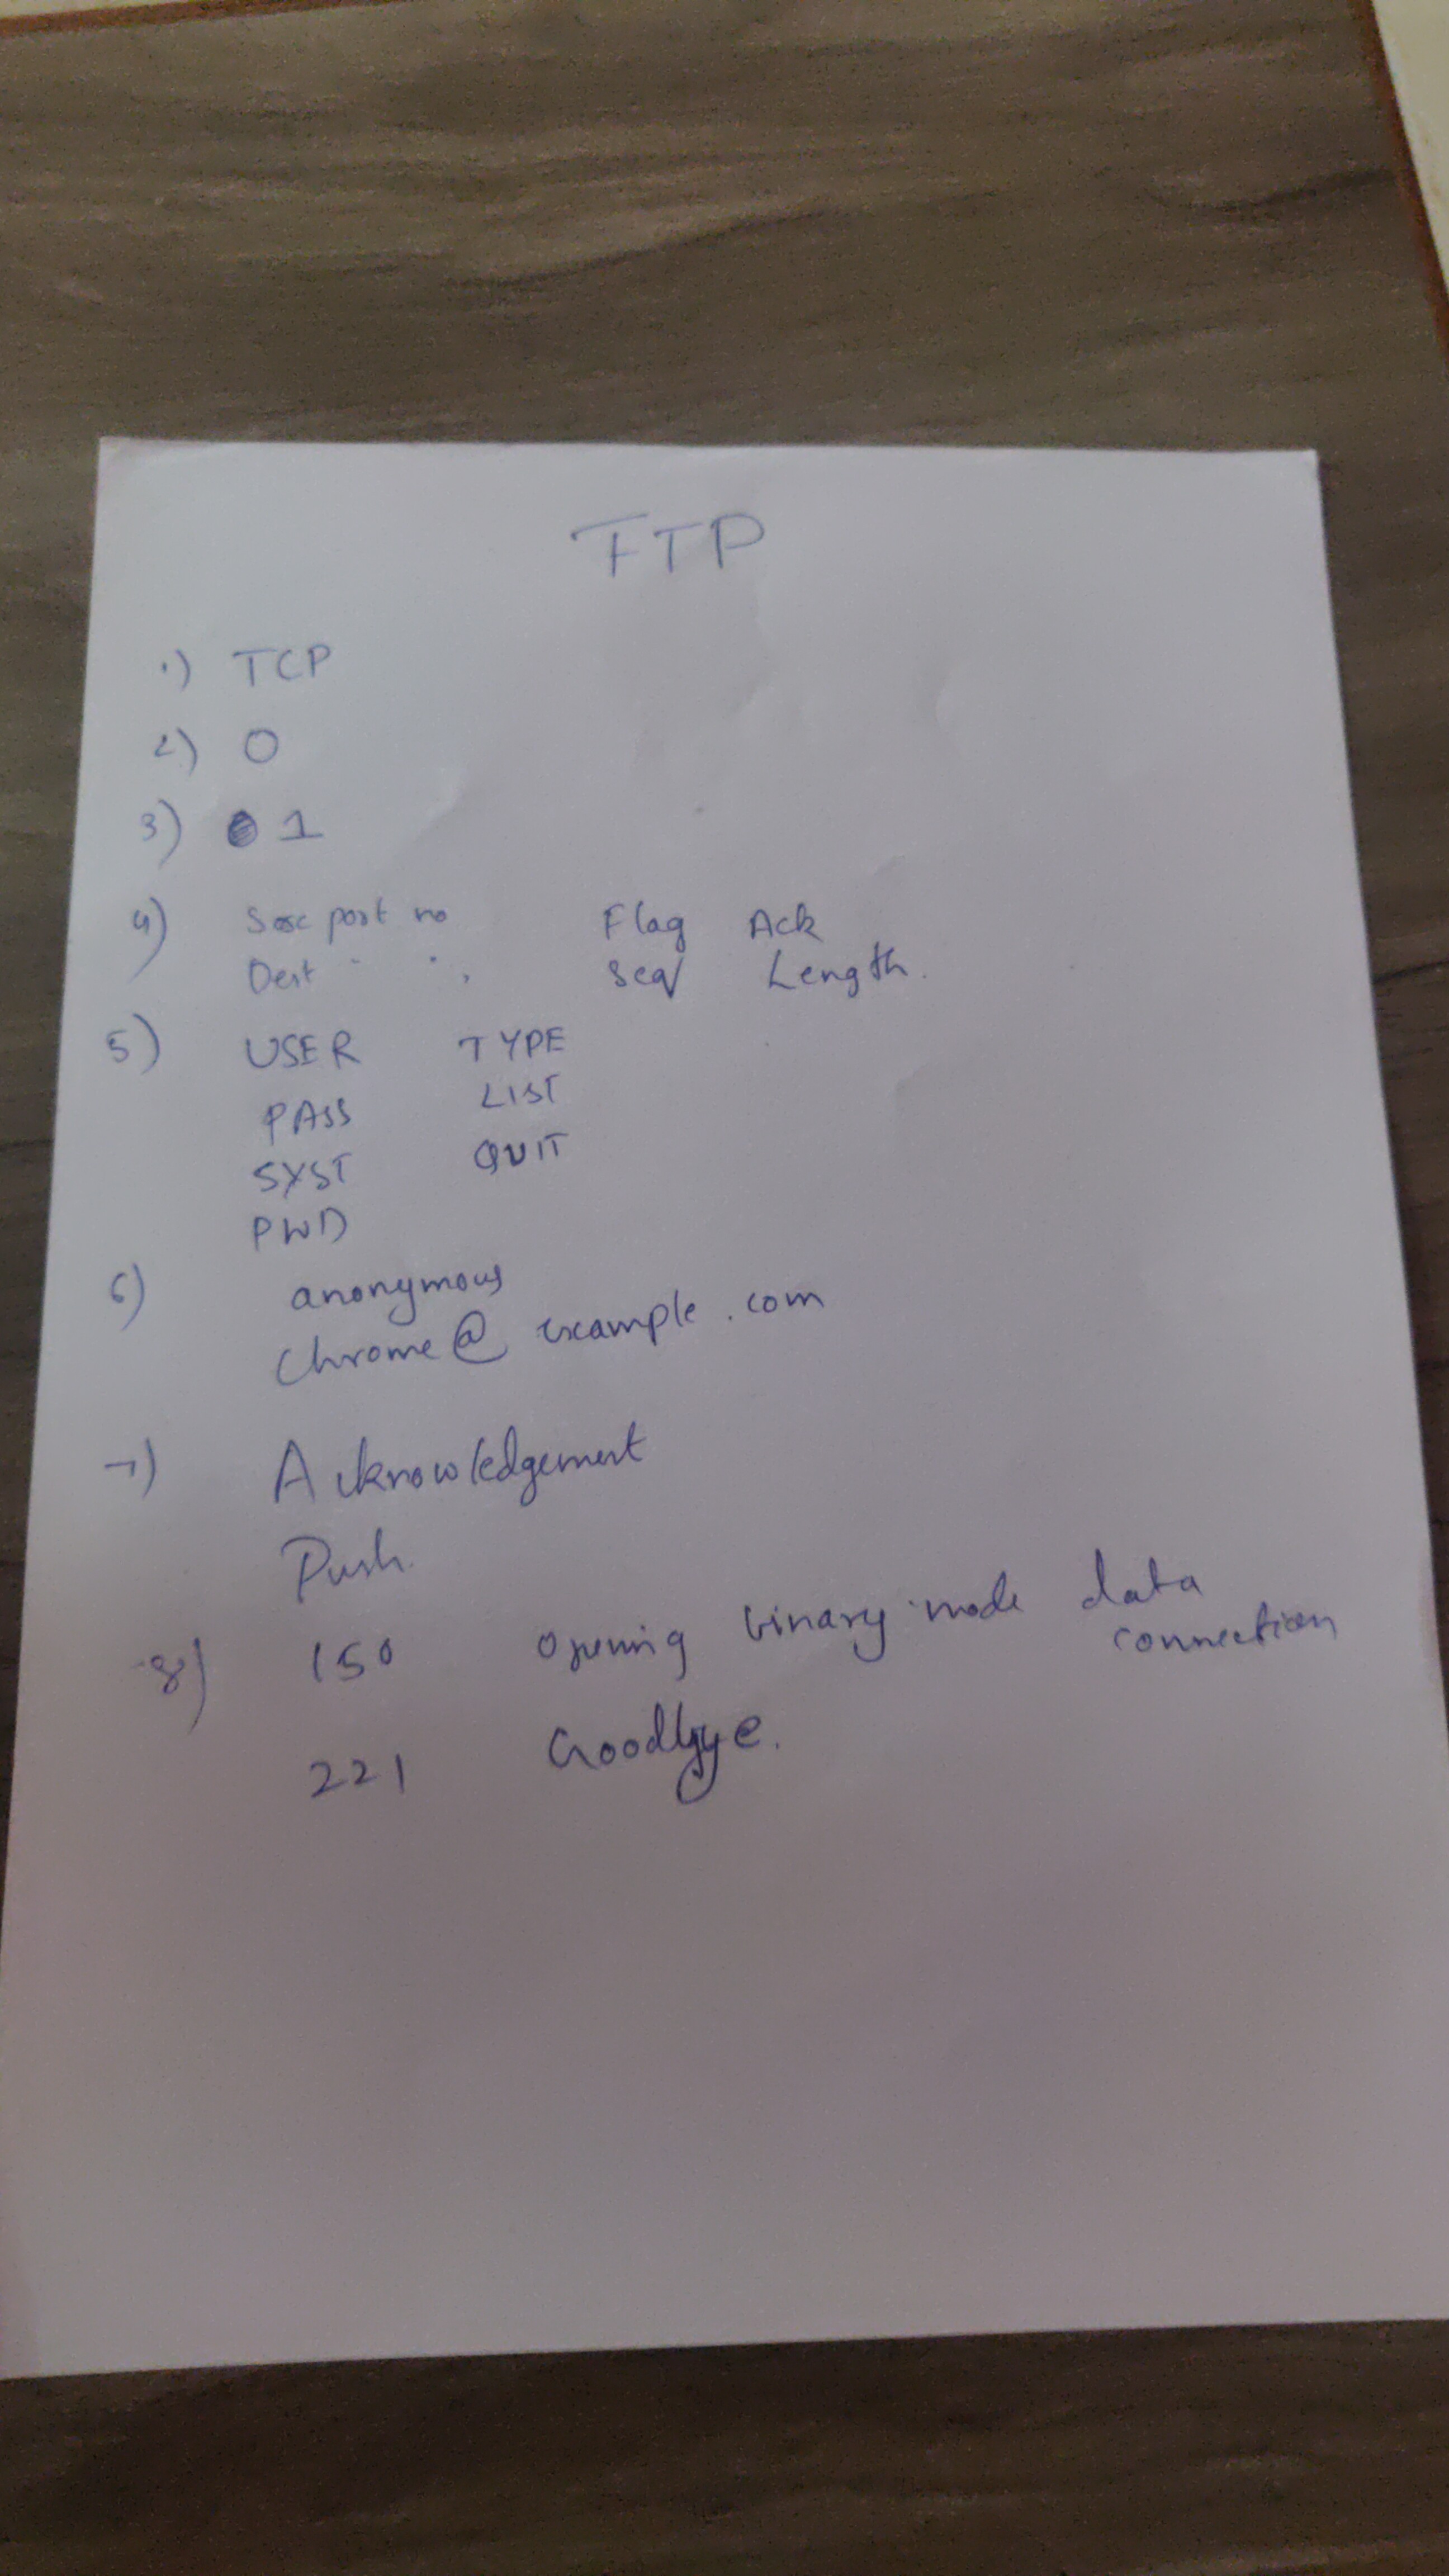 FTP
1) TCP
2) 0
3) 1
4) Sosc post no Flag Ack
Dest " " Seq Length.
5) USER TYPE
PASS LIST
SYST QUIT
PWD
6) anonymous
chrome@example.com
7) Acknowledgement
Push
8) 150 Opening binary mode data
connection
221 Goodbye.